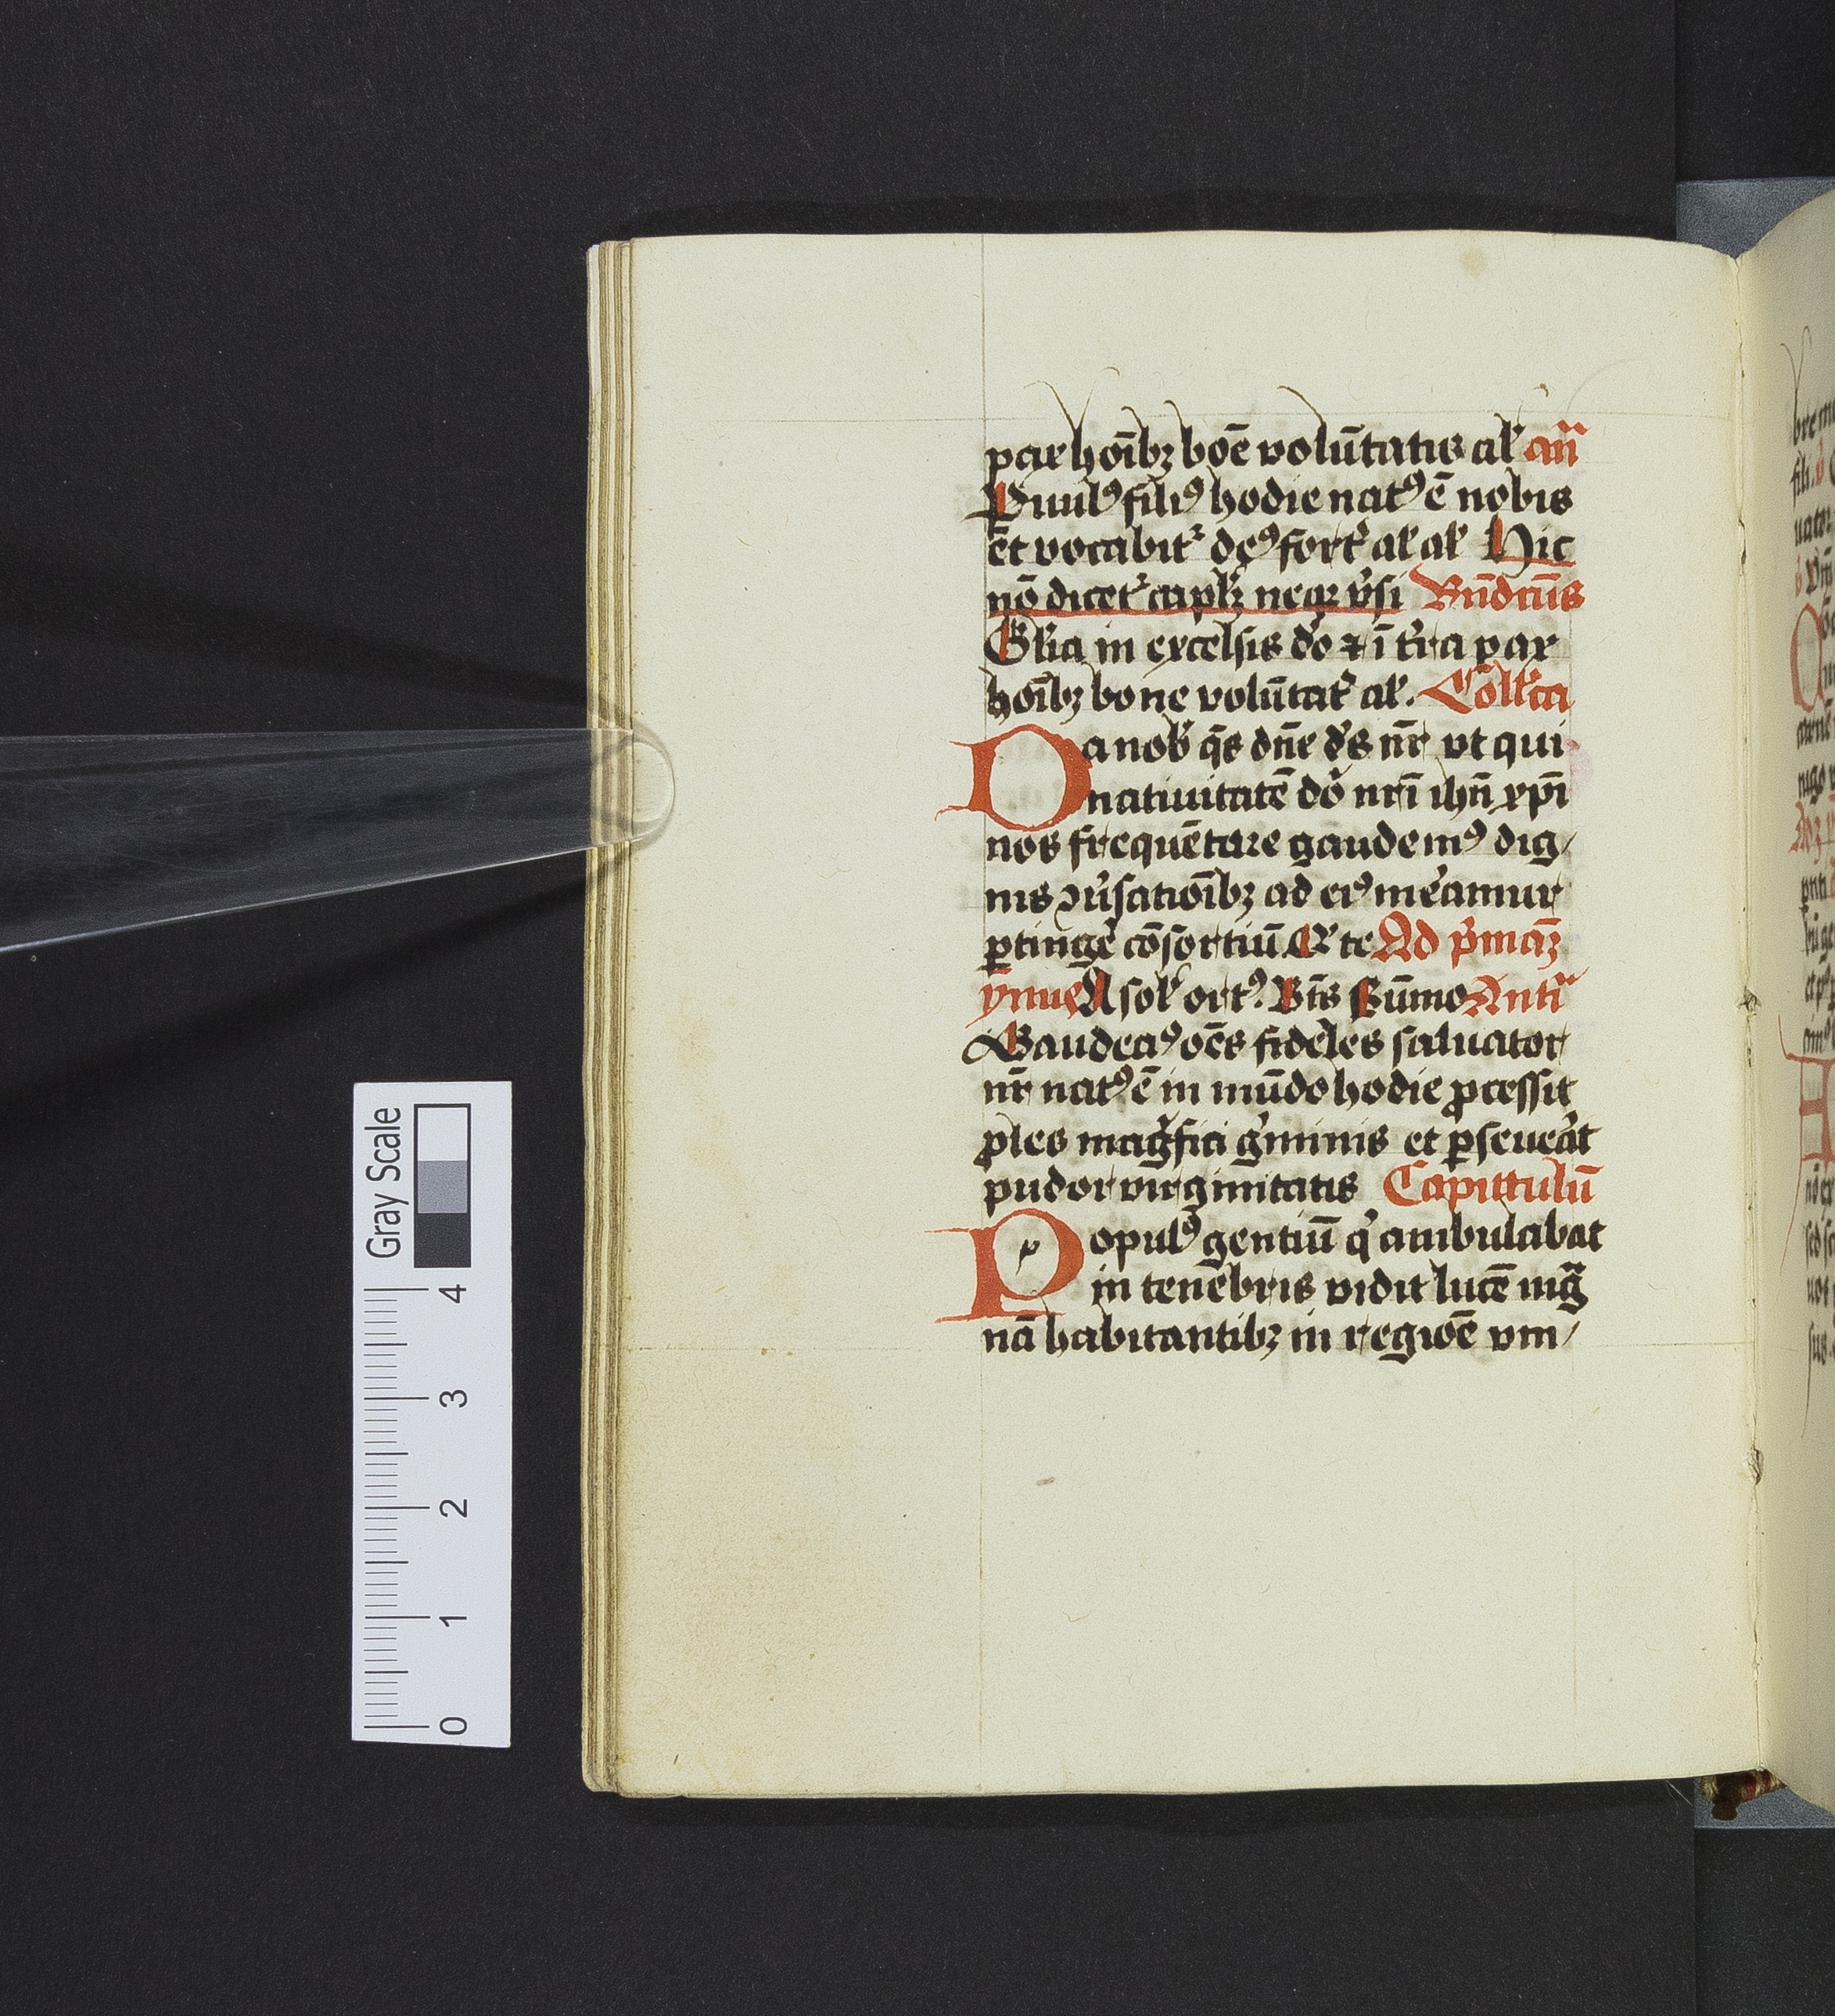 pax hoı̄bꝫ boē volūtatis al' an̄
Puulꝰ filiꝰ hodie natꝰ ē nobis
et vocabit᷑ deꝰ fort' al' al' Hic
nō dicet᷑ capl'ꝫ neqꝫ v'si Bn̄dcūs
Gl'ia in excelsis do ⁊ ī t'ra pax
hoı̄bꝫ bone volūtat' al'. Coll'ca
Da nob' q̄s dn̄e d's nr̄ vt qui
natiuitatē do' nr̄i ihū xp̄i
nos frequētare gaudemꝰ dig/
nis ɔu'satioı̄bꝫ ad eiꝰ me'amur
ꝑtinge' cōsortiū Qr te Ad p'maꝫ
ymnꝰ A sol' ortꝰ. Bt̄s Sūmo Antī
Gaudeaꝰ oēs fideles saluator
nr̄ natꝰ ē in mūdo hodie ꝓcessit
ꝓles mag'fici g'minis et ꝑseue'at
pudor virginitatis Capittulū
Populꝰ gentiū q' ambulabat
in tenebris vidit lucē mag
nā habitantibꝫ in regiōe vm/
Gray Scale
0 1 2 3 4